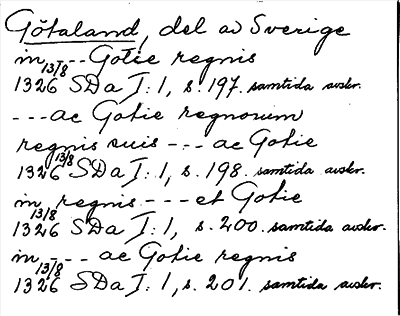 Götaland, del av Sverige
in --- Gotie regnis
1326 13/8 SDa I:1, s. 197. samtida avskr.
--- ac Gotie regnorum
regnis suis --- ac Gotie
1326 13/8 SDa I:1, s. 198. samtida avskr.
in regnis --- et Gotie
1326 13/8 SDa I:1, s. 200. samtida avskr.
in --- ac Gotie regnis
1326 13/8 SDa I:1, s. 201. samtida avskr.